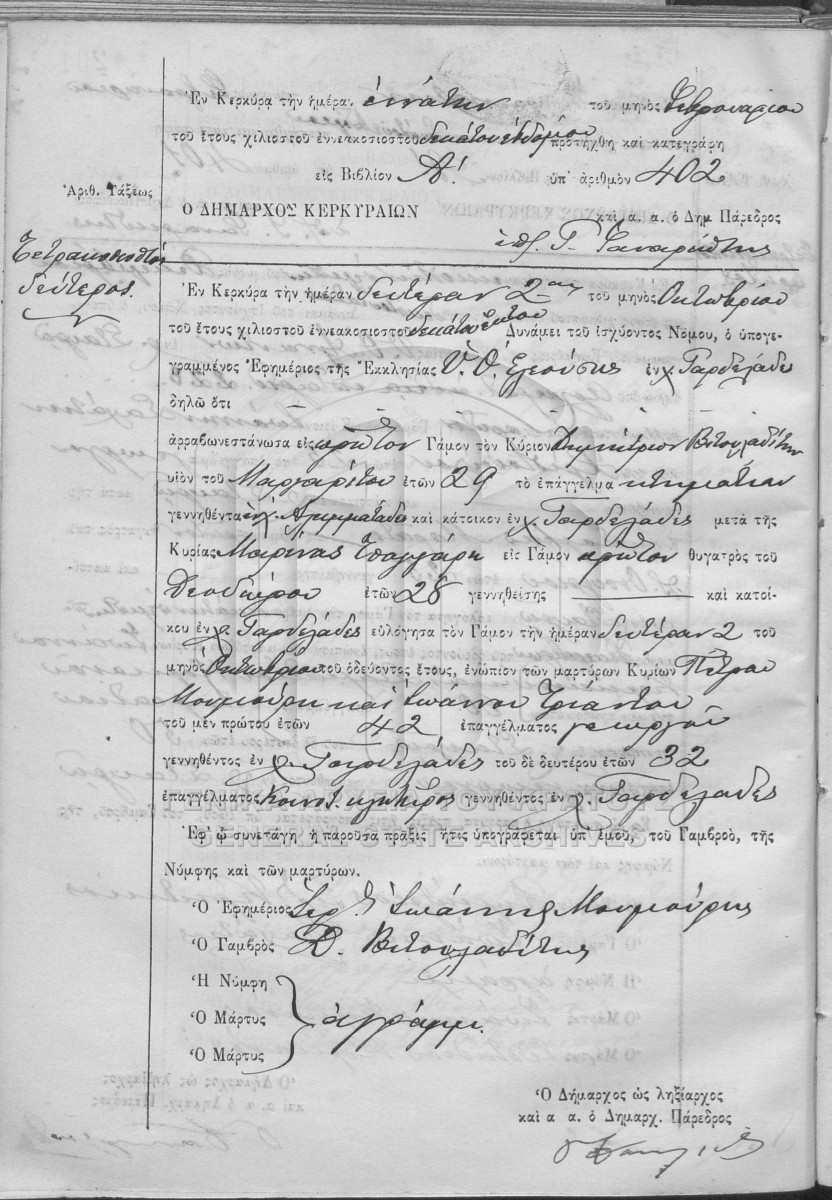 Ἐν Κερκύρᾳ τὴν ἡμέραν ἐνάτην τοῦ μηνὸς Φεβρουαρίου
τοῦ ἔτους χιλιοστοῦ ἐννεακοσιοστοῦ δεκάτου ἑβδόμου προτήχθη καὶ κατεγράφη
εἰς Βιβλίον Α! ὑπ' ἀριθμὸν 402
Ἀριθ. Τάξεως
Ὁ ΔΗΜΑΡΧΟΣ ΚΕΡΚΥΡΑΙΩΝ καὶ α. α. ὁ Δημ. Πάρεδρος
Γ.
Τετρακοσιοστός
δεύτερος.
Ἐν Κερκύρᾳ τὴν ἡμέραν δευτέραν 2αν τοῦ μηνὸς Ὀκτωβρίου
τοῦ ἔτους χιλιοστοῦ ἐννεακοσιοστοῦ δεκάτου ἕκτου Δυνάμει τοῦ ἰσχύοντος Νόμου, ὁ ὑπογε-
γραμμένος Ἐφημέριος τῆς Ἐκκλησίας Ὑ. Θ. Ἐλεούσης ἐν χ. Γαρδελάδες
δηλῶ ὅτι —
ἀρραβωνεστάνωσα εἰς πρῶτον Γάμον τὸν Κύριον Δημήτριον Βιτουλαδίτην
υἱὸν τοῦ Μαργαρίτου ἐτῶν 29 τὸ ἐπάγγελμα κτηματίαν
γεννηθέντα ἐν χ. Ἀλειμματάδες καὶ κάτοικον ἐν χ. Γαρδελάδες μετὰ τῆς
Κυρίας Μαρίνας εἰς Γάμον πρῶτον θυγατρὸς τοῦ
Θεοδώρου ἐτῶν 28 γεννηθείσης — καὶ κατοί-
κου ἐν χ. Γαρδελάδες εὐλόγησα τὸν Γάμον τὴν ἡμέραν δευτέραν 2 τοῦ
μηνὸς Ὀκτωβρίου τοῦ ὁδεύοντος ἔτους, ἐνώπιον τῶν μαρτύρων Κυρίων Πέτρου
Μουμούρη καὶ Ἰωάννου Τριάντου
τοῦ μὲν πρώτου ἐτῶν 42 ἐπαγγέλματος γεωργοῦ
γεννηθέντος ἐν χ. Γαρδελάδες τοῦ δὲ δευτέρου ἐτῶν 32
ἐπαγγέλματος Κοινοτ. κλητῆρος γεννηθέντος ἐν χ. Γαρδελάδες
GENERAL STATE ARCHIVES
Ἐφ' ᾧ συνετάγη ἡ παροῦσα πρᾶξις ἥτις ὑπογράφεται ὑπ' ἐμοῦ, τοῦ Γαμβροῦ, τῆς
Νύμφης καὶ τῶν μαρτύρων.
Ὁ Ἐφημέριος Ἱερ. Ἰωάννης Μουμούρης
Ὁ Γαμβρὸς Δ. Βιτουλαδίτης
Ἡ Νύμφη
Ὁ Μάρτυς ἀγράμμ.
Ὁ Μάρτυς
Ὁ Δήμαρχος ὡς ληξίαρχος
καὶ α α. ὁ Δημαρχ. Πάρεδρος